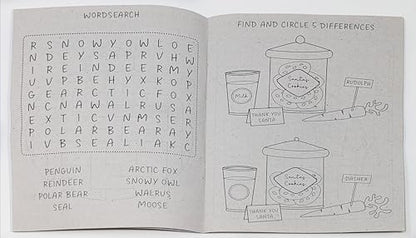 WORDSEARCH
R S N O W Y O W L O E
N D E Y S A P R V H W
I R E I N D E E R M Y
U V P B E H Y X K O P
G E A R C T I C F O X
N C N A W A L R U S A
E X T I C V N M S E R
P O L A R B E A R A Y
I V B S E A L I A K C
PENGUIN
REINDEER
POLAR BEAR
SEAL
ARCTIC FOX
SNOWY OWL
WALRUS
MOOSE
FIND AND CIRCLE 5 DIFFERENCES
Milk
Santas
Cookies
RUDOLPH
THANK YOU
SANTA
Santas
Cookies
DASHER
THANK YOU
SANTA